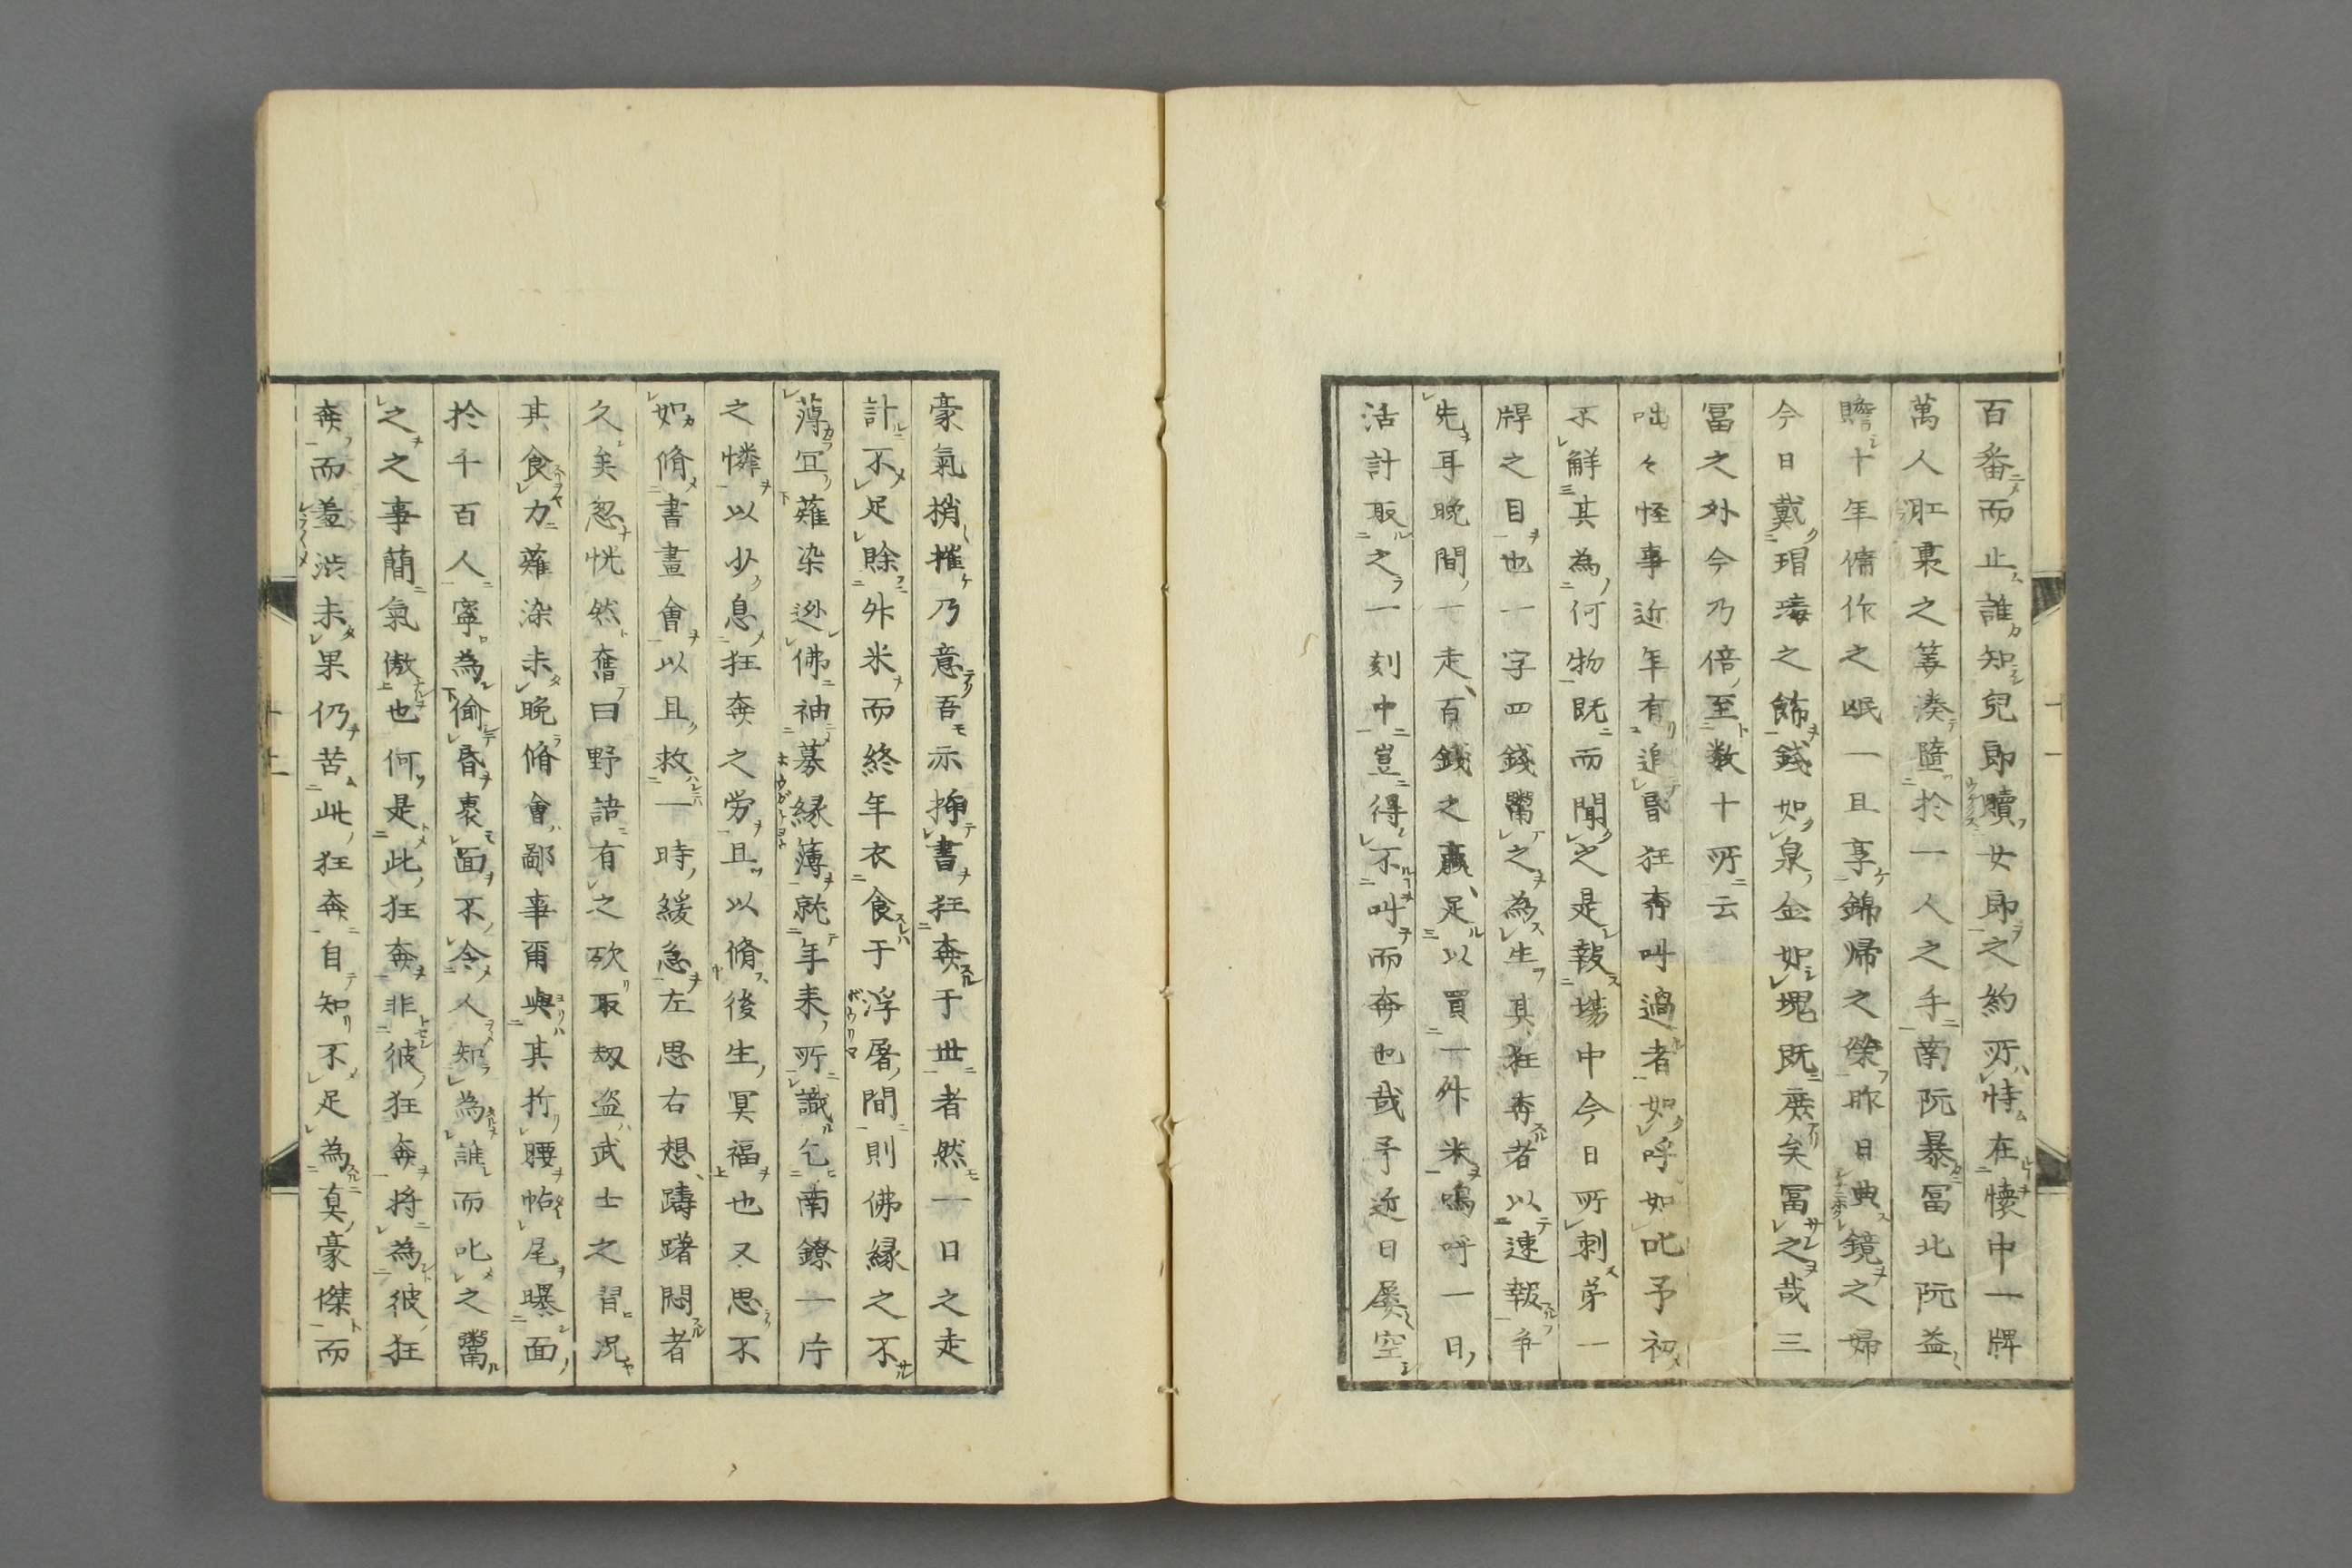 百番而止誰知兒郎贖女郎之約所恃在懐中一牌
萬人肛裏之筭湊墮於一人之手南阮暴冨北阮益
贍十年傭作之氓一旦享錦帰之榮昨日典鏡之婦
今日戴瑁瑇之飾錢如泉金如塊既庶矣冨之哉三
冨之外今乃倍至数十所云
咄々怪事近年有追昏狂奔叫過者如呼如叱予初
不解其為何物既而聞之是報塲中今日所刺第一
牌之目也一字四錢鬻之為生其狂奔者以速報争
先耳晩間一走百錢之贏足以買一升米嗚呼一日
活計取之一刻中豈得不叫而奔也哉予近日屡空
豪氣梢摧乃意吾示抻書狂奔于世者然一日之走
計不足賒升米而終年衣食于浮屠間則佛縁之不
薄冝薙染迯佛袖募縁薄就年来所識乞南鐐一片
之憐以少息狂奔之労且以脩後生冥福也又思不
如脩書畫會以且救一時緩急左思右想躊躇悶者
久矣忽恍然奮曰野諺有之砍取刼盗武士之習况
其食力薙染未晩脩會鄙事甭與其折腰帖尾曝面
於千百人寧為偷昏裹面不令人知為誰而叱之鬻
之之事簡氣傲也何是此狂奔非彼狂奔将為彼狂
奔而羞渋未果仍苦此狂奔自知不足為真豪傑而
十一